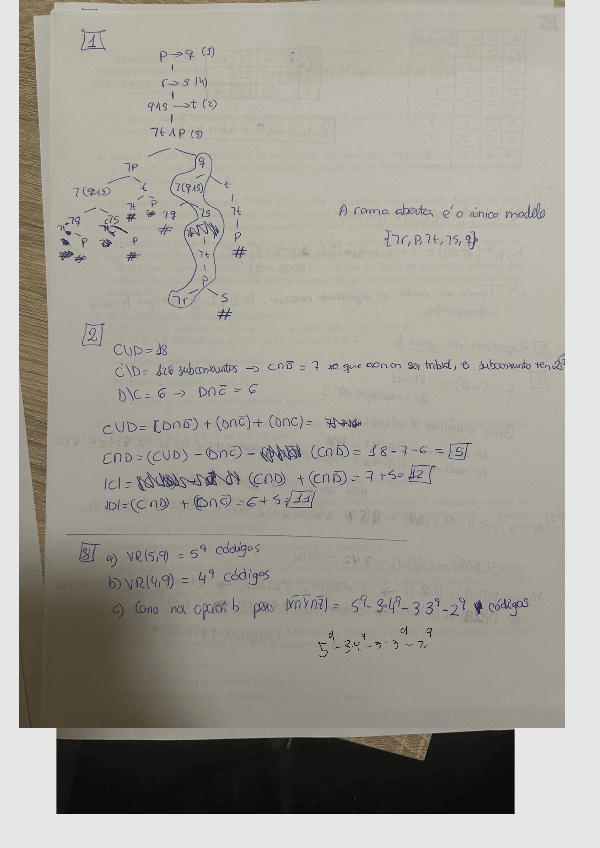 1
p → q (1)
r → s (4)
q∧s → t (2)
¬t ∧ p (3)
¬p q
¬(q∧s) t ¬(q∧s) t
¬q ¬s ¬t p ¬q ¬s ¬t
# # # p
p p ¬t #
# # p
¬r s
#
A rama aberta é o único modelo
{¬r, p, ¬t, ¬s, q}
2
C∪D = 18
C\D = 128 subconxuntos → C∩D̄ = 7 xa que ao non ser tribial, o subconxunto ten
D\C = 6 → D∩C̄ = 6
C∪D = (D∩C̄) + (D∩C̄) + (D∩C) =
C∩D = (C∪D) - (D∩C̄) - (C∩D̄) = 18 - 7 - 6 = 5
|C| = (C∩D) + (C∩D̄) = 7 + 5 = 12
|D| = (C∩D) + (D∩C̄) = 6 + 5 = 11
8 a) VR(5,9) = 5⁹ códigos
b) VR(4,9) = 4⁹ códigos
c) Como na opción b pero = 5⁹ - 3·4⁹ - 3·3⁹ - 2⁹ códigos
5⁹ - 3·4⁹ - 3·3⁹ - 2⁹